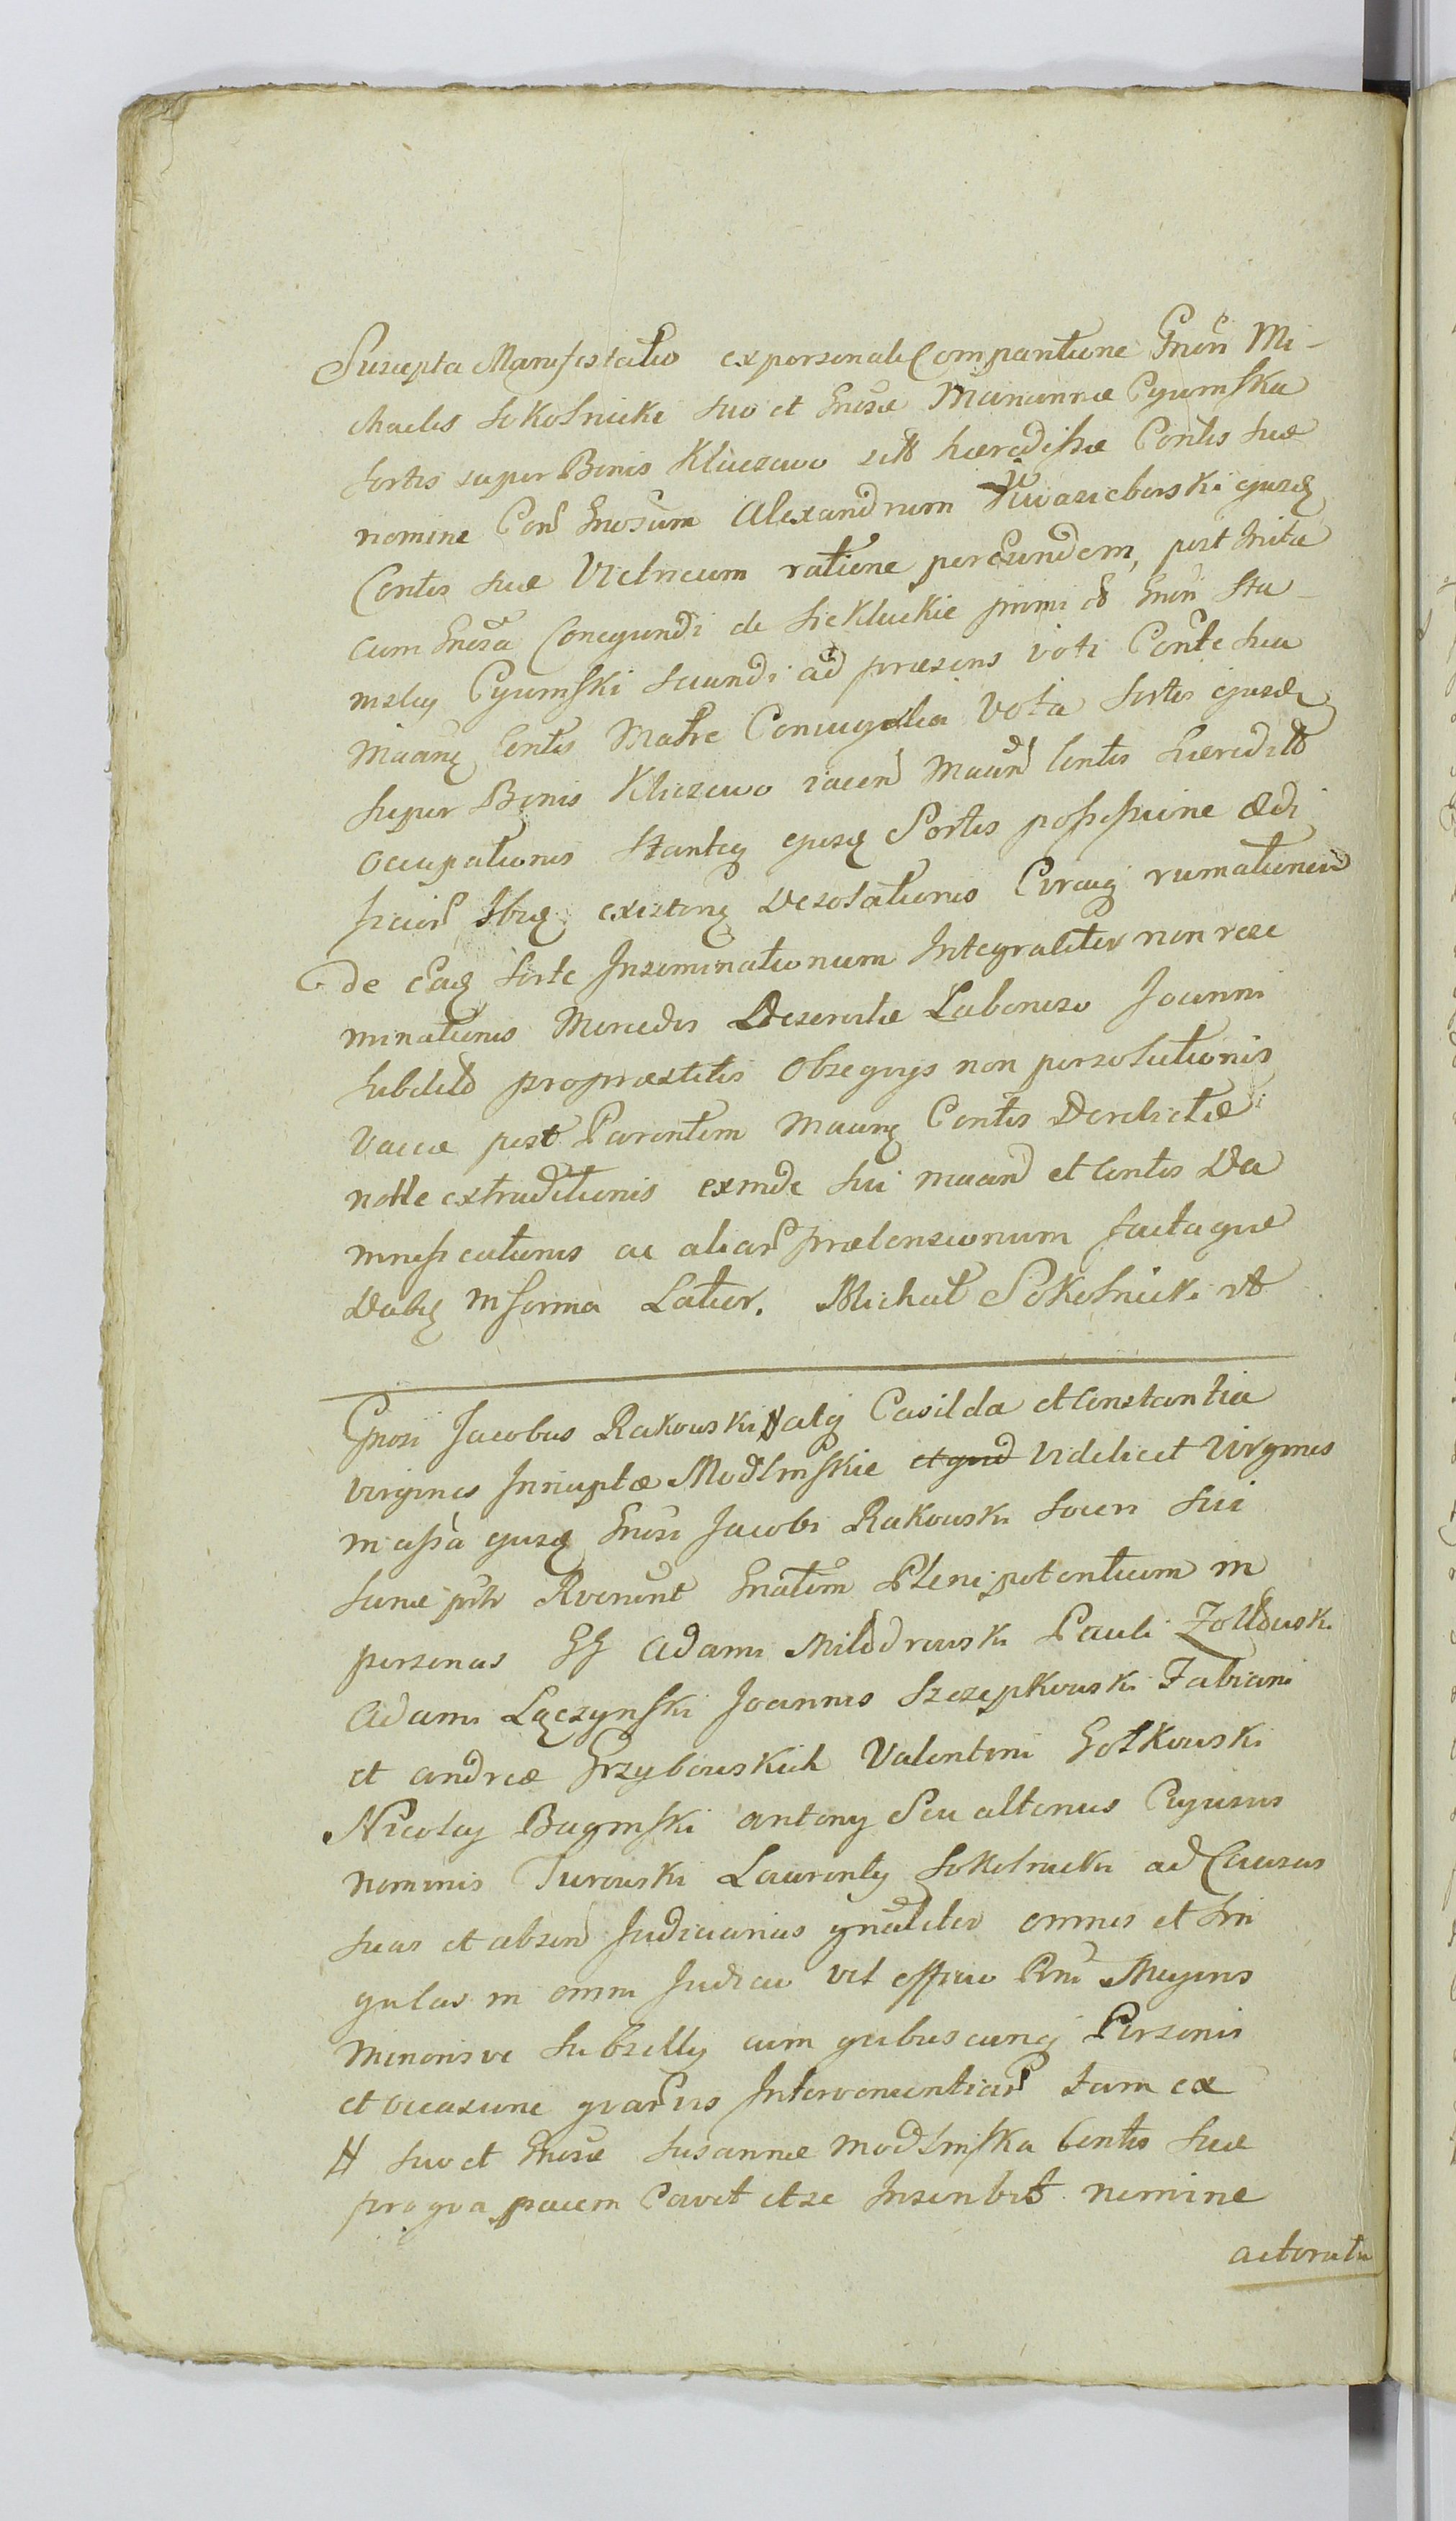 Suscepta Manifestatio ex personali Comparitione Gnosi Mi-
chaelis Sokolnicki suo et Gnosae Mariannae Cyumska
sortis super Bonis Kluczewo sitt haeredissae Contis suae
nomine Con Gnosum Alexandrum Kwasieborski ejusq
Contis suae Vitricum ratione per eundem, post Inita
cum Gnosa Conegundi de Siekluckie primi olt Gnosi Sta-
nislai Cyumski secundi ad praesens voti Conte sua
Maanq Contis Matre Conjugalia Vota Sortis ejusd
super Bonis Kluczewo jacen Maan Contis haeredittt
occupationis stanteq ejusq Sortis possessione aedi
ficior Ibiq existenq Desolationis Circaq rumationem
de eaq Sorte Inseminationum Integraliter non rese
minationis Mercedis Deservitae Laborioso Joanni
subdito pro praestitis Obsequys non persolutionis
Vaccae post Parentem Maanq Contis Derelictae
nolle extraditionis exinde sui maan et Contis Da
mnificationis ac aliar praetensionum factaque
Dabq in forma Latior. Michał Sokolnicki vtt
Gnosi Jacobus Rakowski # atq Casilda et Constantia
virgines Innuptae Modlinskie et qud videlicet Virgines
in assa ejusq Gnosi Jacobi Rakowski Soceri sui
sane ptr Rverunt Gnalem Plenipotentiam in
personas GG Adami Milodrowski Pauli Zolldowsk.
Adami Lączynski Joannis Szczepkowski Fabiani
et Andreae Grzybowskich Valentini Gotkowski
Nicolai Baginski Antony Seu alterius Cujusvis
nominis Turowski Laurenty Sokolnicki ad Causas
suas et absen Judiciarias gnaliter omnes et sin
gulas in omni Judicio vel offcio Rni Mayoris
Minorisve Subselly cum quibuscunq Personis
et occasione quarvis Intervenientiar tam ex
# suo et Gnosae Susannae Modlinska Contis suae
pro qua pacem Cavet et se Inscribit nomine
actoratu